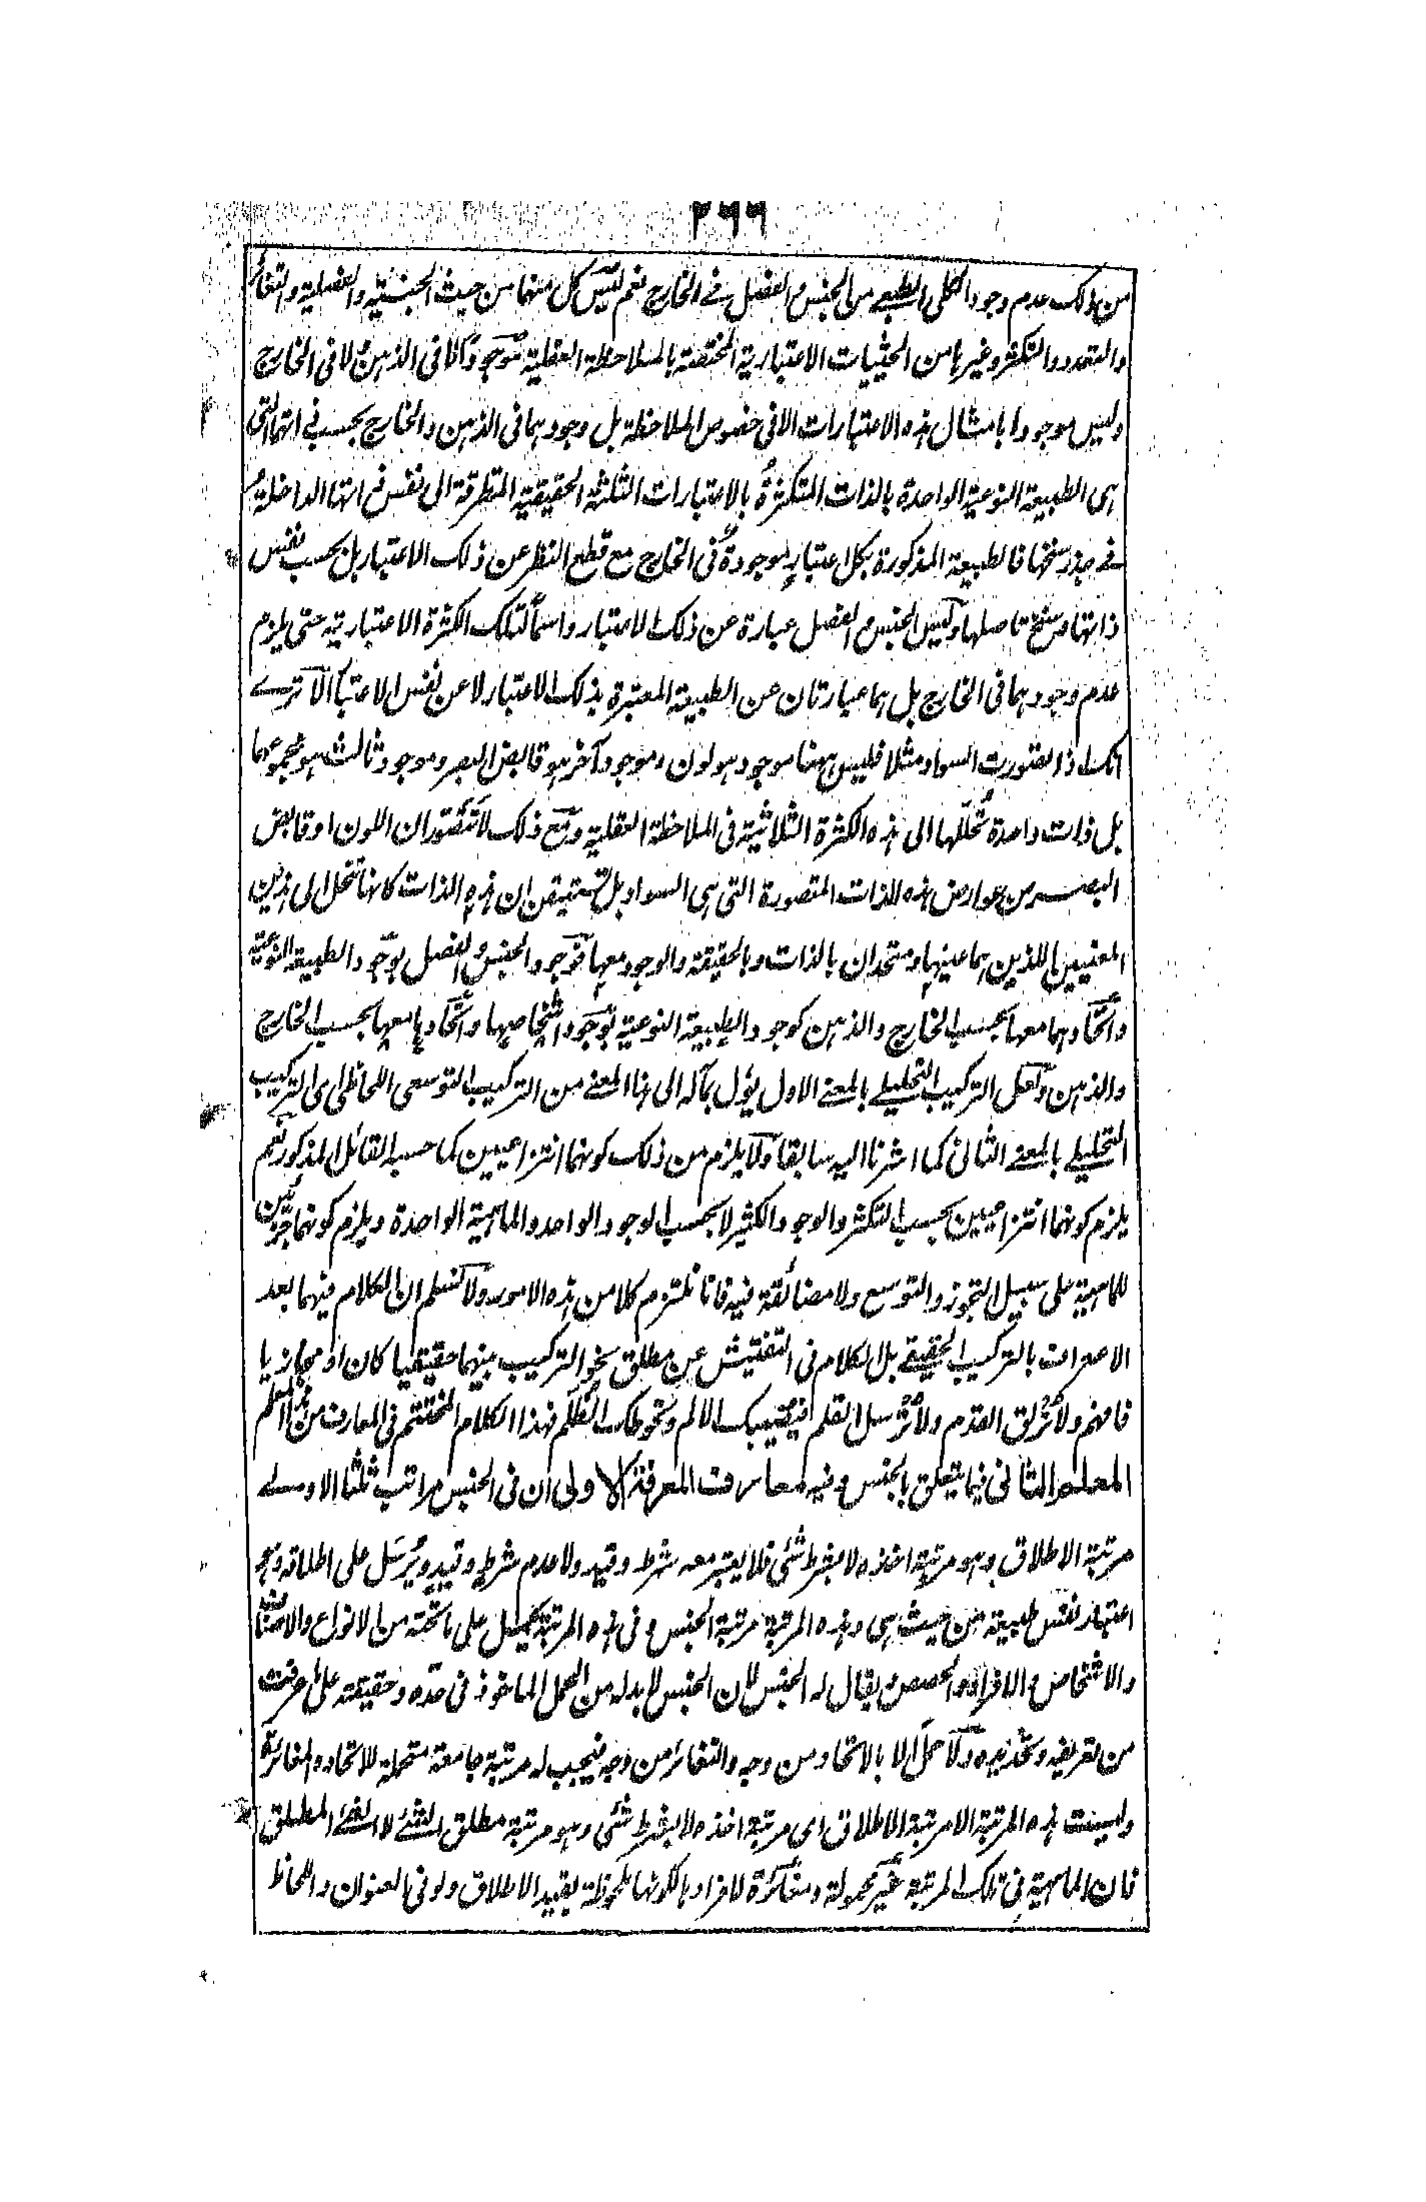 ٢٩٩
من ہالک عدم وجود الكلى الطبعے من الجنس والفصل فے الخارج نعم ليس كل منهما من حيث الجنسية والفصلية والتغائر
والتعدد والتكثر وغيرہا من الحيثيات الاعتبارية المختصة بالملاحظة العقلية موجودًا لا فى الذہن ولا فى الخارج
وليس موجودا بامثال ہذہ الاعتبارات الا فى خصوص الملاحظة بل وجودہما فى الذہن والخارج بحسب ذاتہما التى
ہى الطبيعة النوعية الواحدة بالذات المتكثرةُ بالاعتبارات الثلثة الحقيقية المتطرقة الى نفس ذاتہا الداخلة
فے جذر سنخہا فالطبيعة المذكورة بكل اعتبارٍ موجودةٌ فى الخارج مع قطع النظر عن ذلک الاعتبار بل بحسب نفس
ذاتہا من سنخ تاصلہا وليس الجنس والفصل عبارة عن ذلک الاعتبار واسمًا لتلک الكثرة الاعتبارية حتى يلزم
عدم وجودہما فى الخارج بل ہما عبارتان عن الطبيعة المعتبرة بذلک الاعتبار لا عن نفس الاعتبار الا ترے
انک اذا تصورت السواد مثلا فليس ہہنا موجود ہو لون وموجود آخر ہو قابض البصر وموجود ثالث ہو مجموعہما
بل ذات واحدة تُحلّلہا الى ہذہ الكثرة الثلاثية فى الملاحظة العقلية ومع ذلک لا تتصور ان اللون او قابض
البصر من عوارض ہذہ الذات المتصورة التى ہى السواد بل تستيقن ان ہذہ الذات كانہا تنحل الى ہذين
المعنيين اللذين ہما عينہا ومتحدان بالذات وبالحقيقة والوجود معہا فوجود الجنس والفصل بوجود الطبيعة النوعية
واتحادہما معہا بحسب الخارج والذہن كوجود الطبيعة النوعية بوجود اشخاصہا واتحادہا معہا بحسب الخارج
والذہن ولعل التركيب التحليلے بالمعنے الاول يؤل مآلہ الى ہذا المعنے من التركيب التوسعى اللحاظى اى التركيب
التحليلے بالمعنے الثانى كما اشرنا اليہ سابقا ولا يلزم من ذلک كونہما انتزاعيين كما حسبہ القائل المذكور نعم
يلزم كونہما انتزاعيين بحسب التكثر والوجود الكثير لا بحسب الوجود الواحد والماہية الواحدة ويلزم كونہما جزئين
للماہية على سبيل التجوز والتوسع ولا مضائقة فيہ فانا نلتزم كلا من ہذہ الامور ولا نسلم ان الكلام فيہما بعد
الاعتراف بالتركيب الحقيقے بل الكلام فى التفتيش عن مطلق نحو التركيب بينہما حقيقيا كان او مجازيا
فافہم ولا تُزلق القدم ولا تُرسل القلم فيصيبک الالم وتحوطک الظُلَم فہذا الكلام المختتم فى المعارف من ہذا المعلم
المعلم الثانى فيما يتعلق بالجنس وفيہ معارف المعرفة الاولى ان فى الجنس مراتب ثلثا الاولے
مرتبة الاطلاق وہو مرتبة اخذہ لا بشرط شئ فلا يعتبر معہ شرط وقيد ولا عدم شرط وقيد ويُرسَل على اطلاقہ وہو
اعتبار نفس طبيعة من حيث ہى وہذہ المرتبة مرتبة الجنس وفى ہذہ المرتبة يحمل على ما تحتہ من الانواع والاصناف
والاشخاص والافراد والحصص ويقال لہ الجنس لان الجنس لا بد لہ من الحمل الماخوذ فى حدّہ وحقيقتہ على ما عرفت
من تعريفہ وتحديدہ ولا حمل الا بالاتحاد من وجہ والتغائر من وجہ فيجب لہ مرتبة جامعة متحملة للاتحاد والمغائرة
وليست ہذہ المرتبة الا مرتبة الاطلاق اى مرتبة اخذہ لا بشرط شئ وہو مرتبة مطلق الشئے لا الشئے المطلق
فان الماہية فى تلک المرتبة غير محمولة ومغائرة لافرادہا لكونہا ملحوظة بقيد الاطلاق ولو فى العنوان واللحاظ